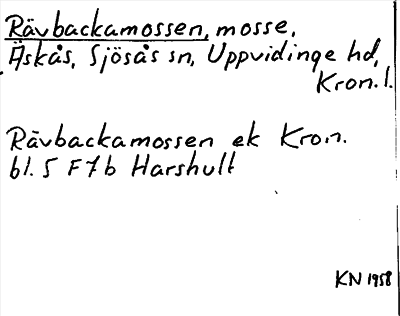 Rävbackamossen, mosse,
Äskås, Sjösås sn, Uppvidinge hd,
Kron. l.
Rävbackamossen ek Kron.
bl. 5 F7b Harshult
KN 1958